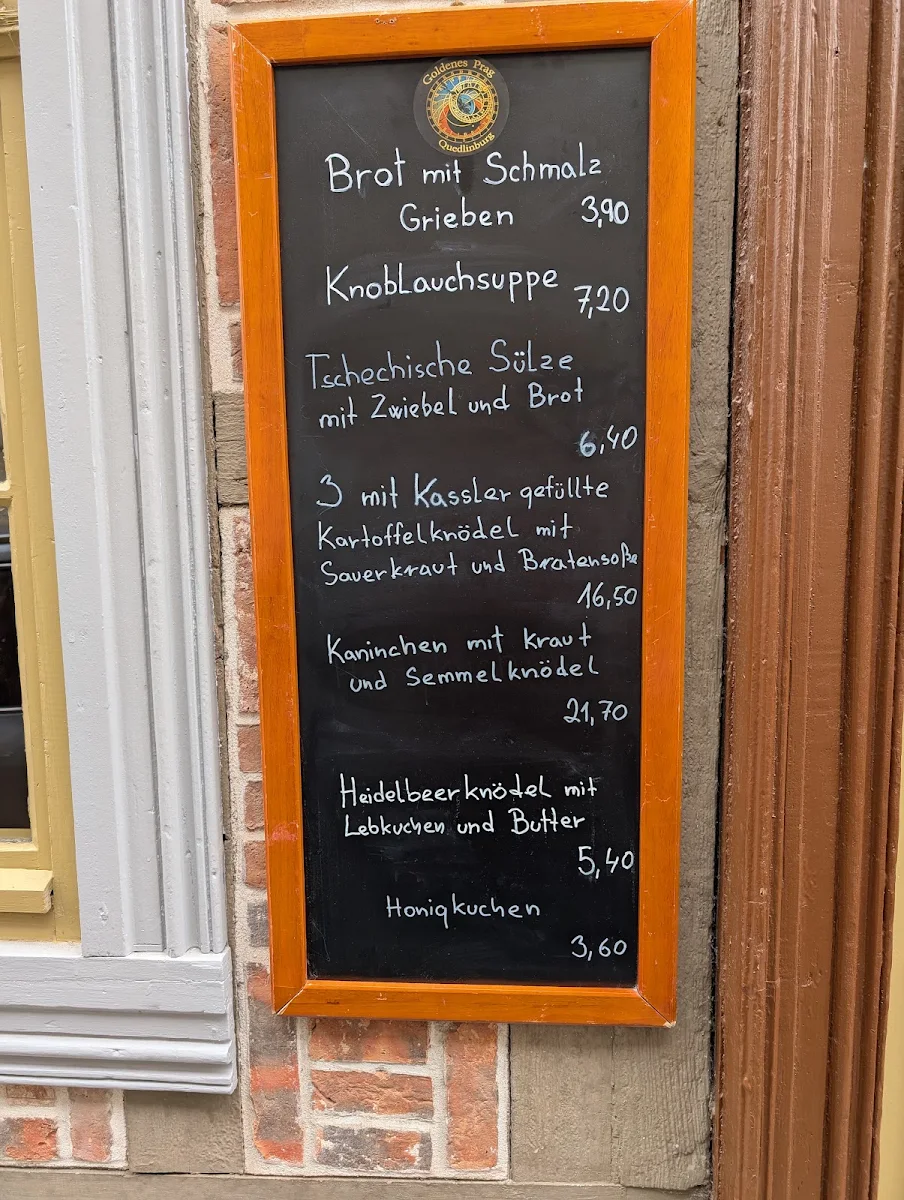 Goldenes Prag
Quedlinburg
Brot mit Schmalz
Grieben 3,90
Knoblauchsuppe
7,20
Tschechische Sülze
mit Zwiebel und Brot
6,40
3 mit Kassler gefüllte
Kartoffelknödel mit
Sauerkraut und Bratensoße
16,50
Kaninchen mit Kraut
und Semmelknödel
21,70
Heidelbeerknödel mit
Lebkuchen und Butter
5,40
Honigkuchen
3,60